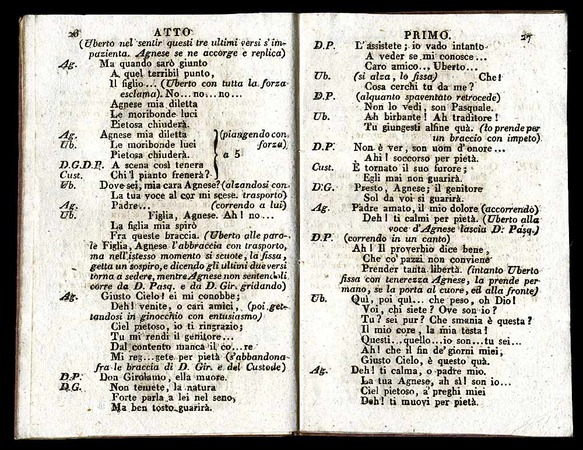 26 ATTO
(Uberto nel sentir questi tre ultimi versi s'im-
pazienta. Agnese se ne accorge e replica)
Ag. Ma quando sarò giunto
A quel terribil punto,
Il figlio... (Uberto con tutta la forza
esclama). No... no... no...
Agnese mia diletta
Le moribonde luci
Pietosa chiuderà.
Ag. Agnese mia diletta (piangendo con
Ub. Le moribonde luci forza)
Pietosa chiuderà. a 5
D.G.D.P. A scena così tenera
Cust. Chi 'l pianto frenerà?
Ub. Dove sei, mia cara Agnese? (alzandosi con
La tua voce al cor mi scese. trasporto)
Ag. Padre... (correndo a lui)
Ub. Figlia, Agnese. Ah! no...
La figlia mia spirò
Fra queste braccia. (Uberto alle paro-
le Figlia, Agnese l'abbraccia con trasporto,
ma nell'istesso momento si scuote, la fissa,
getta un sospiro, e dicendo gli ultimi due versi
torna a sedere, mentre Agnese non sentendoli
corre da D. Pasq. e da D. Gir. gridando)
Ag. Giusto Cielo! ei mi conobbe;
Deh! venite, o cari amici, (poi get-
tandosi in ginocchio con entusiasmo)
Ciel pietoso, io ti ringrazio;
Tu mi rendi il genitore...
Dal contento manca il co...re
Mi reg...gete per pietà (s'abbandona
fra le braccia di D. Gir. e del Custode)
D.P. Don Girolamo, ella muore.
D.G. Non temete, la natura
Forte parla a lei nel seno,
Ma ben tosto guarirà.
PRIMO. 27
D.P. L'assistete; io vado intanto
A veder se mi conosce...
Caro amico... Uberto...
Ub. (si alza, lo fissa) Che!
Cosa cerchi tu da me?
D.P. (alquanto spaventato retrocede)
Non lo vedi, son Pasquale.
Ub. Ah birbante! Ah traditore!
Tu giungesti alfine quà. (lo prende per
un braccio con impeto)
D.P. Non è ver, son uom d'onore...
Ahi! soccorso per pietà.
Cust. È tornato il suo furore;
Egli mai non guarirà.
D.G. Presto, Agnese; il genitore
Sol da voi si guarirà.
Ag. Padre amato, il mio dolore (accorrendo)
Deh! ti calmi per pietà. (Uberto alla
voce d'Agnese lascia D. Pasq.)
D.P. (correndo in un canto)
Ah! Il proverbio dice bene,
Che co' pazzi non conviene
Prender tanta libertà. (intanto Uberto
fissa con tenerezza Agnese, la prende per
mano, se la porta al cuore, ed alla fronte)
Ub. Quì, poi quì... che peso, oh Dio!
Voi, chi siete? Ove son io?
Tu? sei pur? Che smania è questa?
Il mio core, la mia testa!
Questi...quello...io son...tu sei...
Ah! che il fin de' giorni miei,
Giusto Cielo, è questo quà.
Ag. Deh! ti calma, o padre mio.
La tua Agnese, ah sì! son io...
Ciel pietoso, a' preghi miei
Deh! ti muovi per pietà.